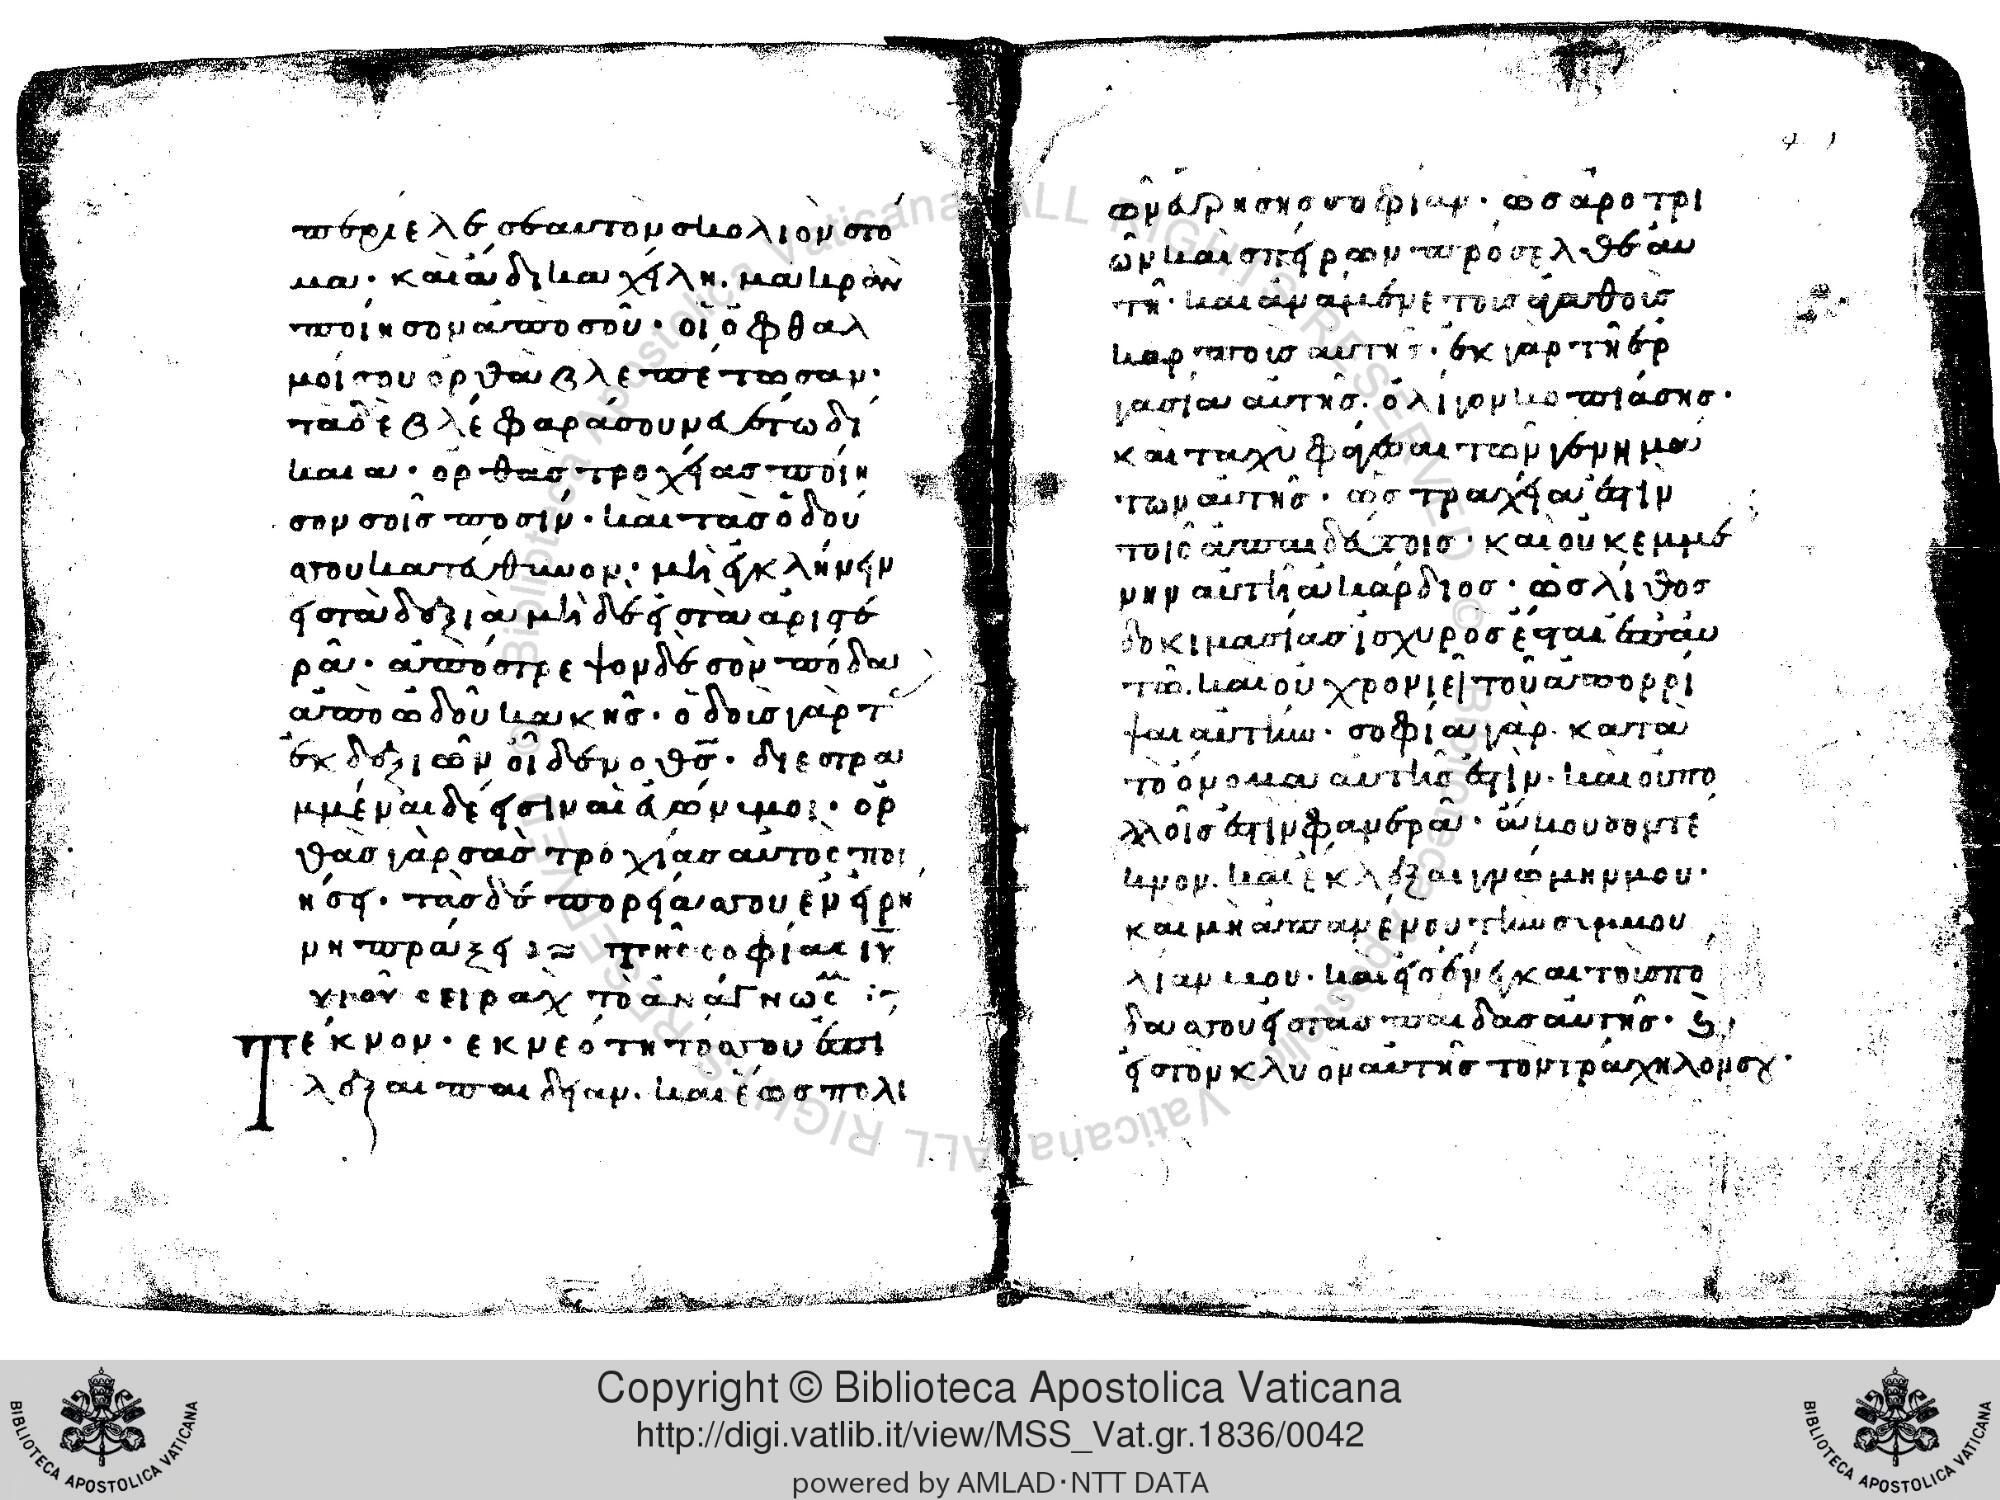 περίελε σεαυτον σκολιὸν στό
μα· καὶ ἄδικα χείλη. μακρὰν
ποίησον ἀπο σοῦ· οἱ ὀφθαλ
μοί σου ὀρθὰ βλεπέτωσαν·
τὰ δὲ βλέφαρά σου νευέτω δί
καια· ὀρθὰς τροχείας ποίη
σον σοῖς ποσίν· καὶ τὰς ὁδού
σσου κατέυθυνον· μὴ ἐκκλήνειν
εἰς τὰ δεξιὰ μὴ δὲ εἰς τὰ ἀριστε
ρά· ἀπόστρεψον δὲ σὸν πόδα
ἀπὸ ὡδοῦ κακῆς· ὁδοὺς γὰρ τ
ἐκ δεξιῶν οἶδεν ὁ θς· διεστρα
μμέναι δέ εἰσιν αἱ ἐξ εὐωνύμοι· ὀρ
θὰς γὰρ σὰς τροχίας αὐτὸς ποι
ήσει· τὰς δὲ πορείας σου ἐν εἰρή
νη πράξει
τῆς σοφίας ιυ
υἱοῦ σειρὰχ τὸ ἀνάγνωσ
Τέκνον· ἐκ νεότητός σου ἐπί
λεξαι παιδείαν. καὶ ἕως πολι
ῶν εὑρήσης σοφίαν· ὡς ἀροτρι
ῶν καὶ σπείρων πρόσελθε αυ
τῆ· καὶ ἀνάμενε τοὺς ἀγαθοὺς
καρποὺς αὐτῆς· ἐκ γὰρ τῆ ἐρ
γασία αὐτῆς. ὀλίγον κοπιάσης·
καὶ ταχὺ φάγεσαι τῶν γενημά
των αὐτῆς· ὡς τραχεία ἐστὶν
τοῖς ἀπαιδεύτοις· καὶ οὐκ ἐμμέ
νην αὐτὴ ἀκάρδιος· ὡς λίθος
δοκιμασίας ἰσχυρὸς ἔσται ἐπ αυ
τῶ. καὶ οὐ χρονιεῖ τοῦ ἀπορρί
ψαι αὐτὴν· σοφία γὰρ. κατὰ
τὸ ὄνομα αὐτῆς ἐστὶν· καὶ οὐ πο
λλοῖς ἐστὶν φανερά· ἄκουσον τέ
κνον. καὶ ἔκλεξαι γνώμην μου·
καὶ μὴ ἀπανένου τὴν συμβου
λίαν μου· καὶ εἰσένεγκαι τοὺς πό
δασσου εἰς τὰς παίδας αὐτῆς· καὶ
εἰς τὸν κλυὸν αὐτῆς τὸν τράχηλον σου·
Copyright © Biblioteca Apostolica Vaticana
http://digi.vatlib.it/view/MSS_Vat.gr.1836/0042
powered by AMLAD·NTT DATA
BIBLIOTECA APOSTOLICA VATICANA
BIBLIOTECA APOSTOLICA VATICANA